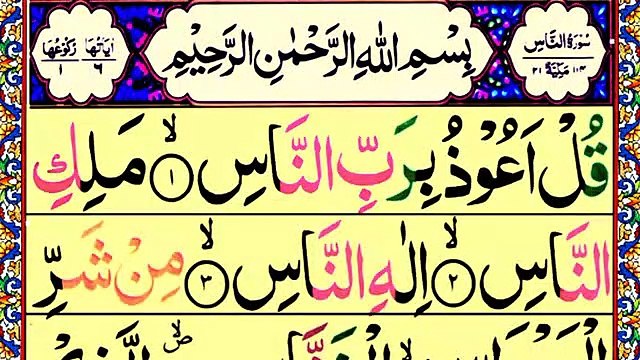 سُوْرَةُ النَّاسِ
١١٤ مَكِّيَّةٌ ٢١
بِسْمِ اللّٰهِ الرَّحْمٰنِ الرَّحِيْمِ
اٰيَاتُهَا ٦ رُكُوْعُهَا ١
قُلْ اَعُوْذُ بِرَبِّ النَّاسِ ۙ﴿١﴾ مَلِكِ
النَّاسِ ۙ﴿٢﴾ اِلٰهِ النَّاسِ ۙ﴿٣﴾ مِنْ شَرِّ